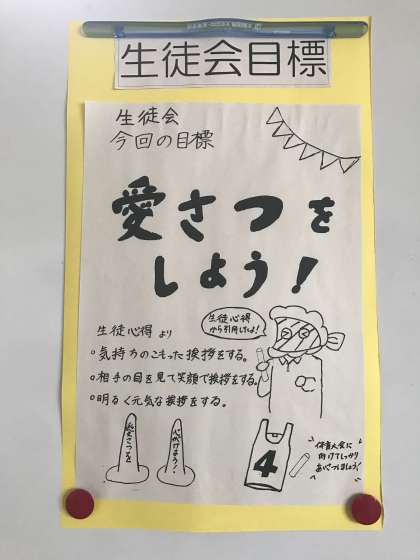 生徒会目標
生徒会
今回の目標
愛さつを
しよう！
生徒心得より
生徒心得
から引用したよ！
○気持ちのこもった挨拶をする。
○相手の目を見て笑顔で挨拶をする。
○明るく元気な挨拶をする。
愛さつを
心がけよう！
4
体育大会に
向けてしっかり
あいさつしましょう！